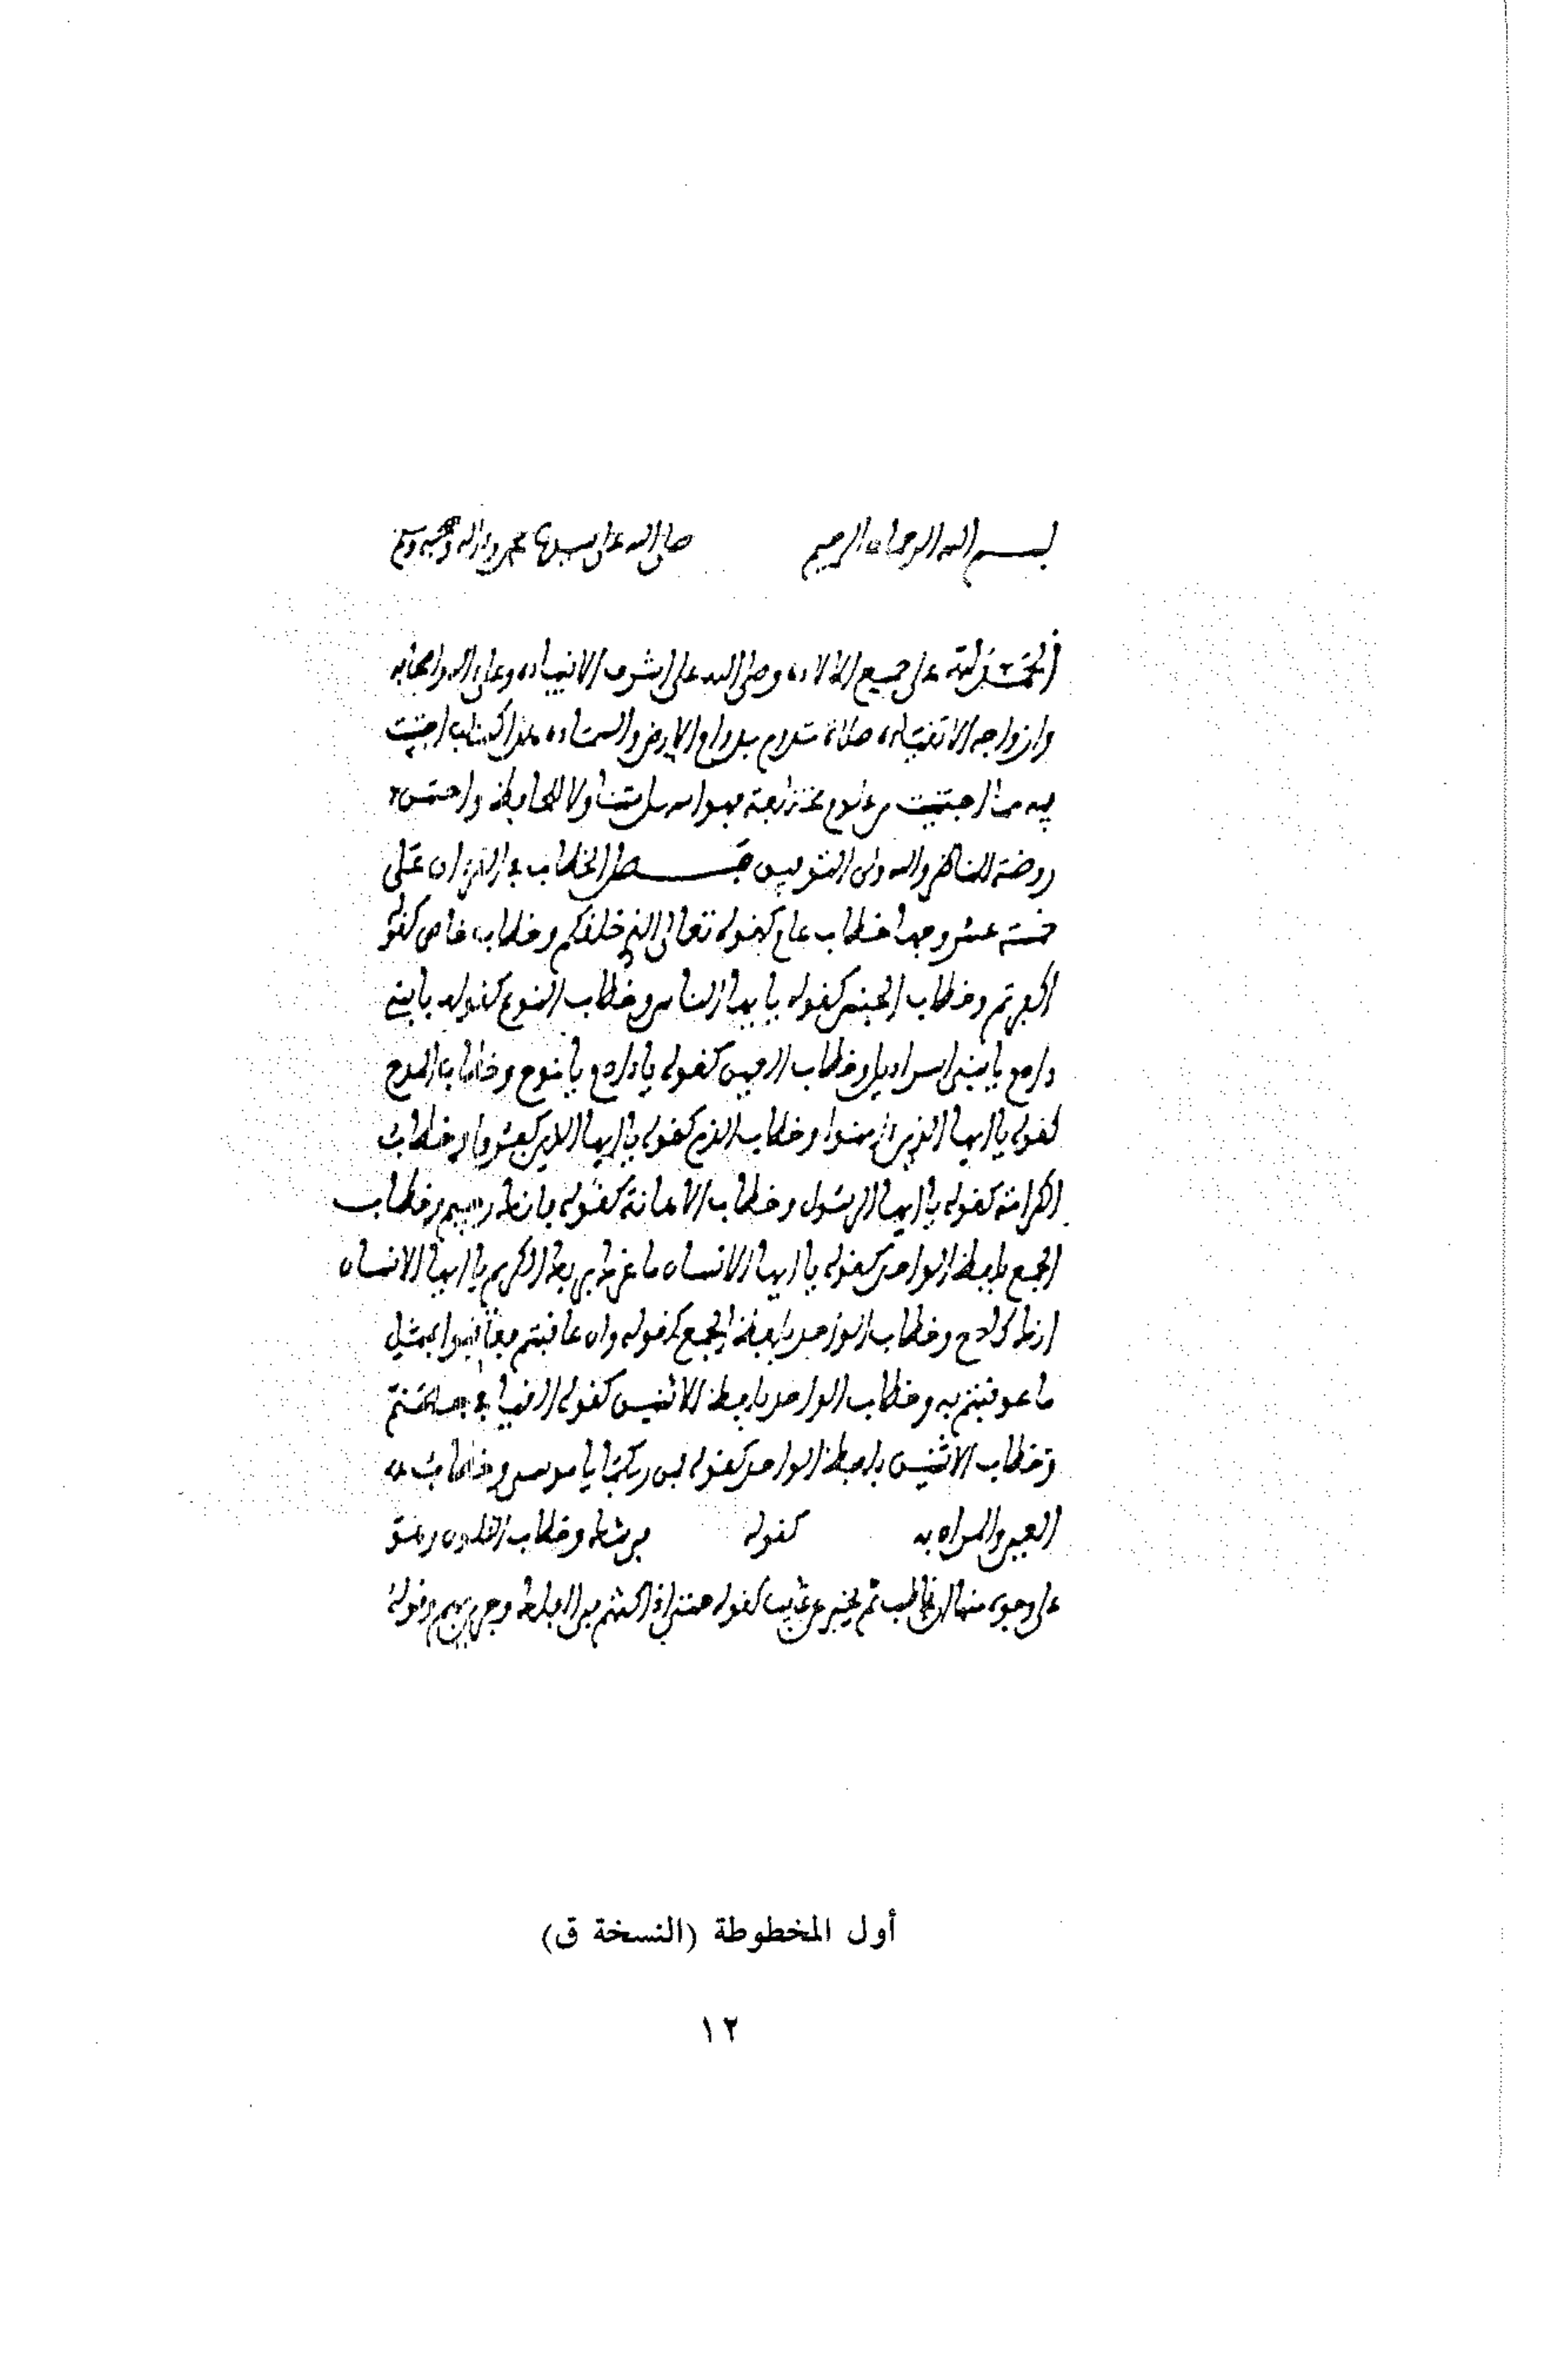 بسم الله الرحمان الرحيم صلى الله على سيدنا محمد وءاله وصحبه وسلم
الحمد لله على جميع الالاء وصلى الله على اشرف الانبياء وعلى ءاله واصحابه
وازواجه الاتقياء صلاة تدوم بدوام الارض والسماء هذا كتاب اجتنيت
فيه مما اجتنيت من علوم
روضة للناظر والله ولى التوفيق فصل الخطاب في القرءان على
خمسة عشر وجها خطاب عام كقوله تعالى الذي خلقكم وخطاب خاص كقوله
اكفرتم وخطاب الجنس كقوله يا يها الناس وخطاب النوع كقوله يابني
ءادم يا بني اسراءيل وخطاب العين كقوله يا ءادم يا نوح وخطاب المدح
كقوله يا ايها الذين ءامنوا وخطاب الذم كقوله يا ايها الذين كفروا وخطاب
الكرامة كقوله يا ايها الرسول وخطاب الاهانة كقوله فانك رجيم وخطاب
الجمع بلفظ الواحد كقوله يا ايها الانسان ما غرك بربك الكريم يا ايها الانسان
انك كادح وخطاب الواحد بلفظ الجمع كقوله وان عاقبتم فعاقبوا بمثل
ما عوقبتم به وخطاب الواحد بلفظ الاثنين كقوله القيا في جهنم
وخطاب الاثنين بلفظ الواحد كقوله فمن ربكما يا موسى وخطاب
العين والمراد به كقوله وخطاب التلون وهو
على وجوه منها ان يخاطب ثم يخبر عن غايب كقوله حتى اذا كنتم في الفلك وجرين بهم وقوله
أول المخطوطة (النسخة ق)
١٢